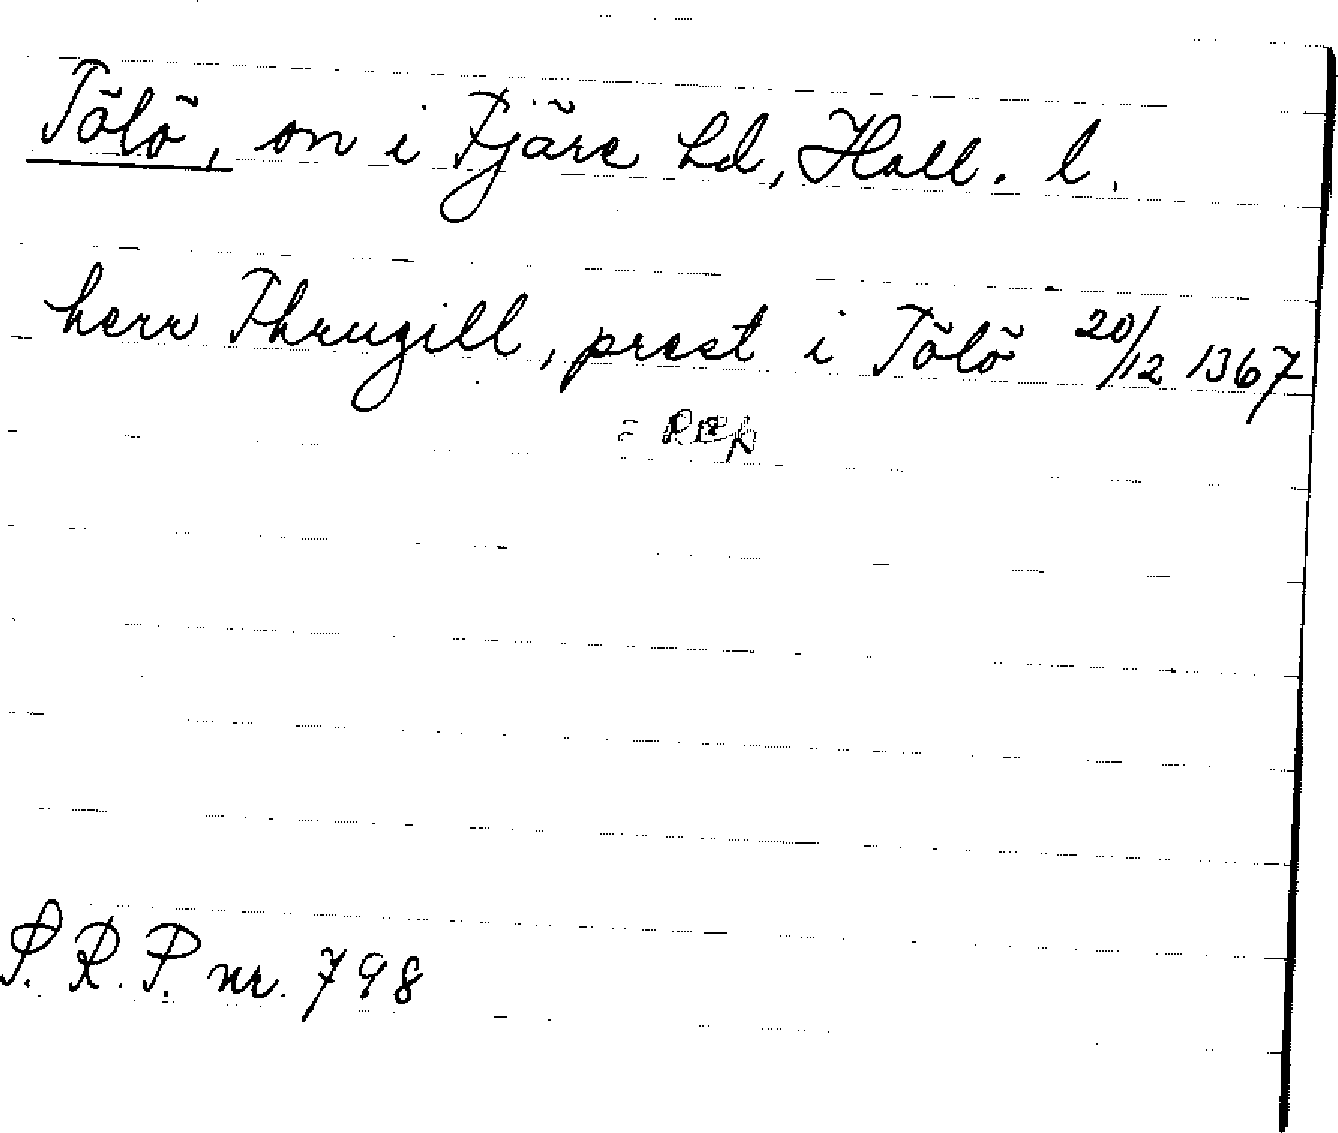 Tölö, sn i Fjäre hd, Hall. l.
herr Thrugill, prest i Tölö 20/12 1367
S.R.P. nr. 798